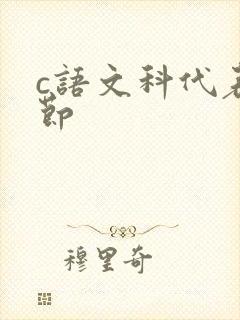 c語文科代表
節
穆里奇